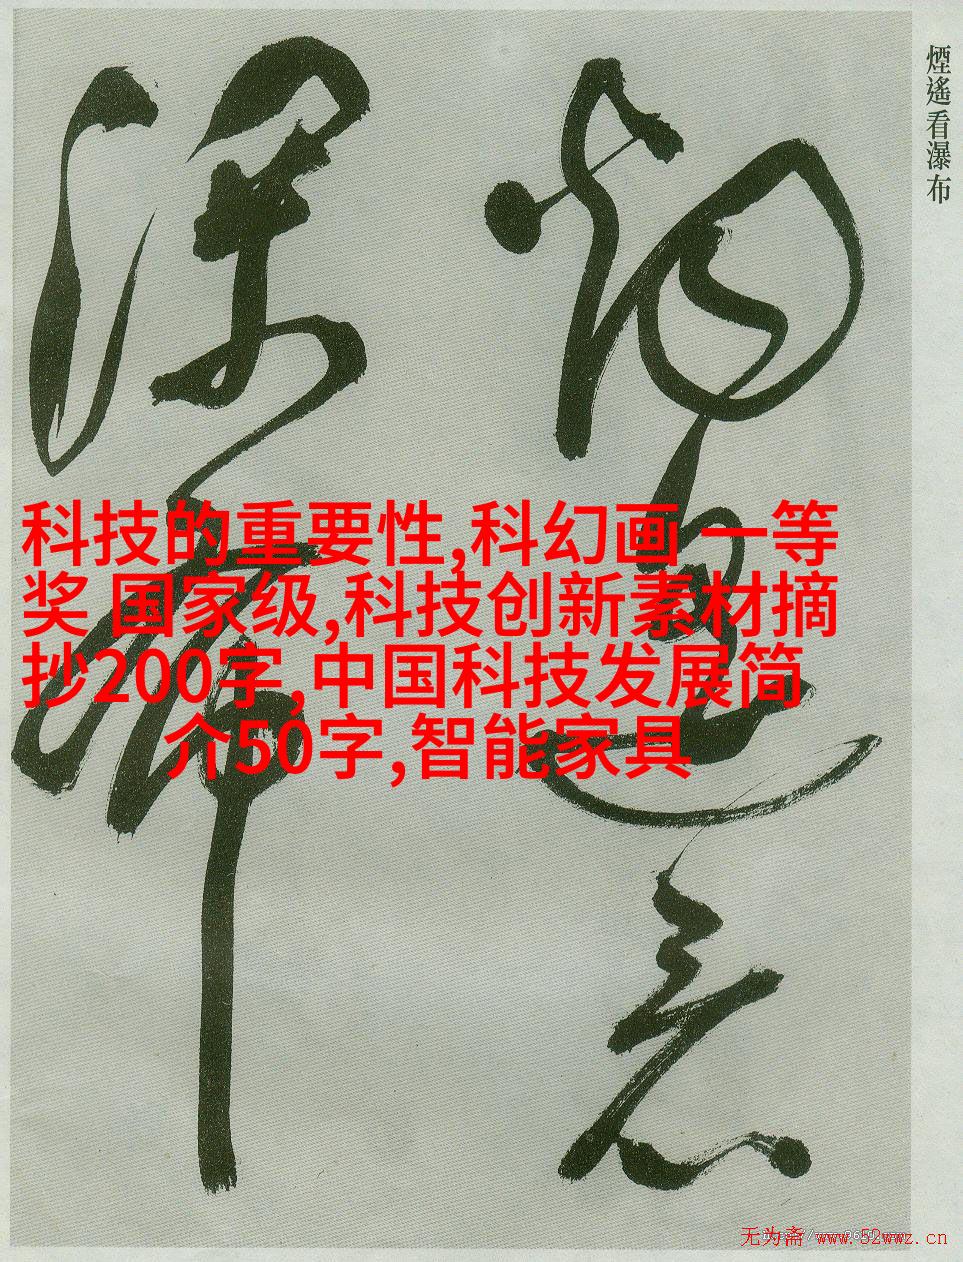 煙遙看瀑布
烟遥看
瀑布
科技的重要性,科幻画 一等
奖 国家级,科技创新素材摘
抄200字,中国科技发展简
介50字,智能家具
无为斋 www.52wwz.cn